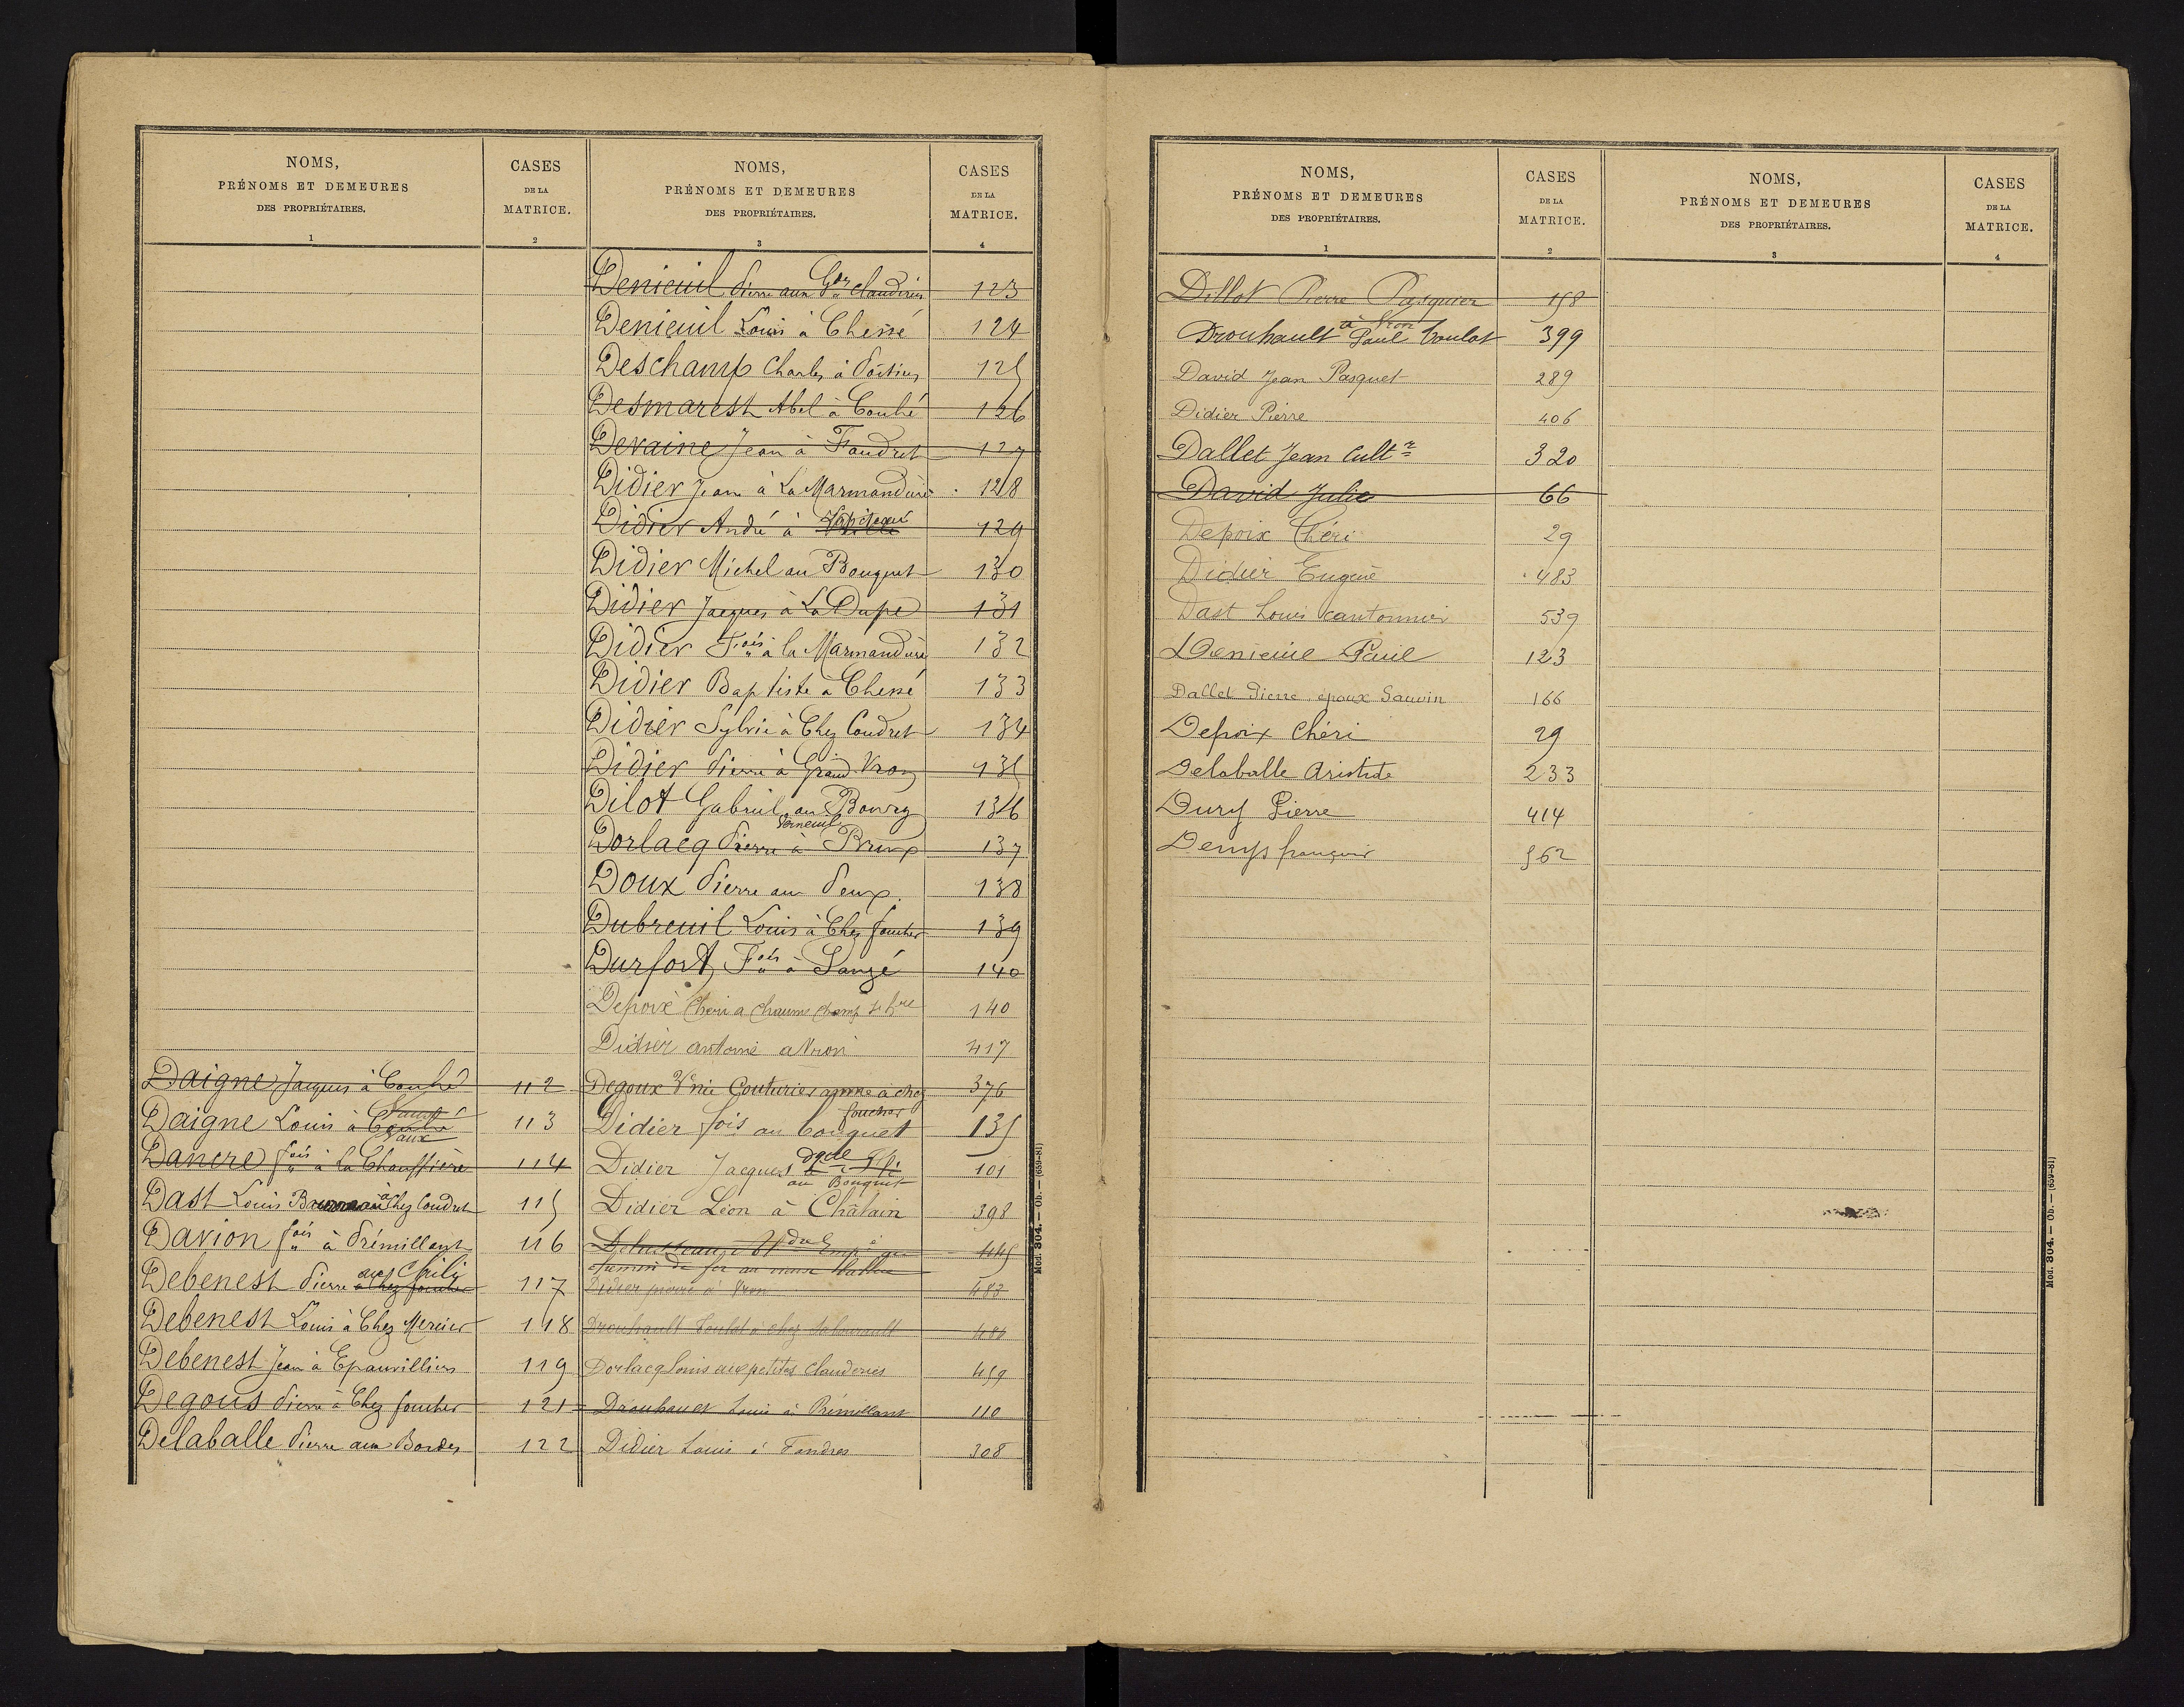 NOMS,
PRÉNOMS ET DEMEURES
DES PROPRIÉTAIRES.
1
CASES
DE LA
MATRICE.
2
Daigne Jacques à Couhé 112
Daigne Louis à Couhé Vaux 113
Dancre fois à la Chauffière 114
Dast Louis à Chez Coudret 115
Davion fois à Prémillant 116
Debenest Pierre à Chez foucher 117
Debenest Louis à Chez Mercier 118
Debenest Jean à Epanvilliers 119
Degous Pierre à Chez foucher 121
Delaballe Pierre aux Bordes 122
NOMS,
PRÉNOMS ET DEMEURES
DES PROPRIÉTAIRES.
3
CASES
DE LA
MATRICE.
4
Denieuil Pierre aux Gdes Clauderies 123
Denieuil Louis à Chessé 124
Deschamp Charles à Poitiers 125
Desmarest Abel à Couhé 126
Devaine Jean à Faudret 127
Didier Jean à La Marmandière 128
Didier André à 129
Didier Michel au Bouquet 130
Didier Jacques à La Dupe 131
Didier Fois à la Marmandière 132
Didier Baptiste à Chessé 133
Didier Sylvie à Chez Coudret 134
Didier Pierre à Grand Vron 135
Dilot Gabriel au Bourg 136
Verneuil
Dorlacq Pierre à Brux 137
Doux Pierre au Peux 138
Dubreuil Louis à Chez foucher 139
Durfort, Fois à Sanzé 140
Depoix Chéri a chaume champ 140
Didier antoine a Vron 417
Degoux Vve née Couturier anne à chez 376
foucher
Didier fois au bouquet 135
Didier Jacques 101
au Bouquet
Didier Léon à Châlain 398
445
chemin de fer au
Didier pierre à Vron 483
Drouhault Coulot à chez 486
Dorlacq Louis aux petites clauderies 459
Drouhault Louis à Prémillant 110
Didier Louis à Fandres 308
Mod. 304. — Ob. — (659-81)
NOMS,
PRÉNOMS ET DEMEURES
DES PROPRIÉTAIRES.
1
CASES
DE LA
MATRICE.
2
Dillot Pierre Pasquier 158
à Vron
Drouhault Paul Coulot 399
David Jean Pasquet 289
Didier Pierre 406
Dallet Jean Cultr 320
David Julie 66
Depoix Chéri 29
Didier Eugène 483
Dast Louis cantonnier 539
Denieuil Paul 123
Dallet Pierre epoux Sauvin 166
Depoix Chéri 29
Delaballe Aristide 233
Dury Pierre 414
Denys françois 562
NOMS,
PRÉNOMS ET DEMEURES
DES PROPRIÉTAIRES.
3
CASES
DE LA
MATRICE.
4
Mod. 304. — Ob. — (659-81)